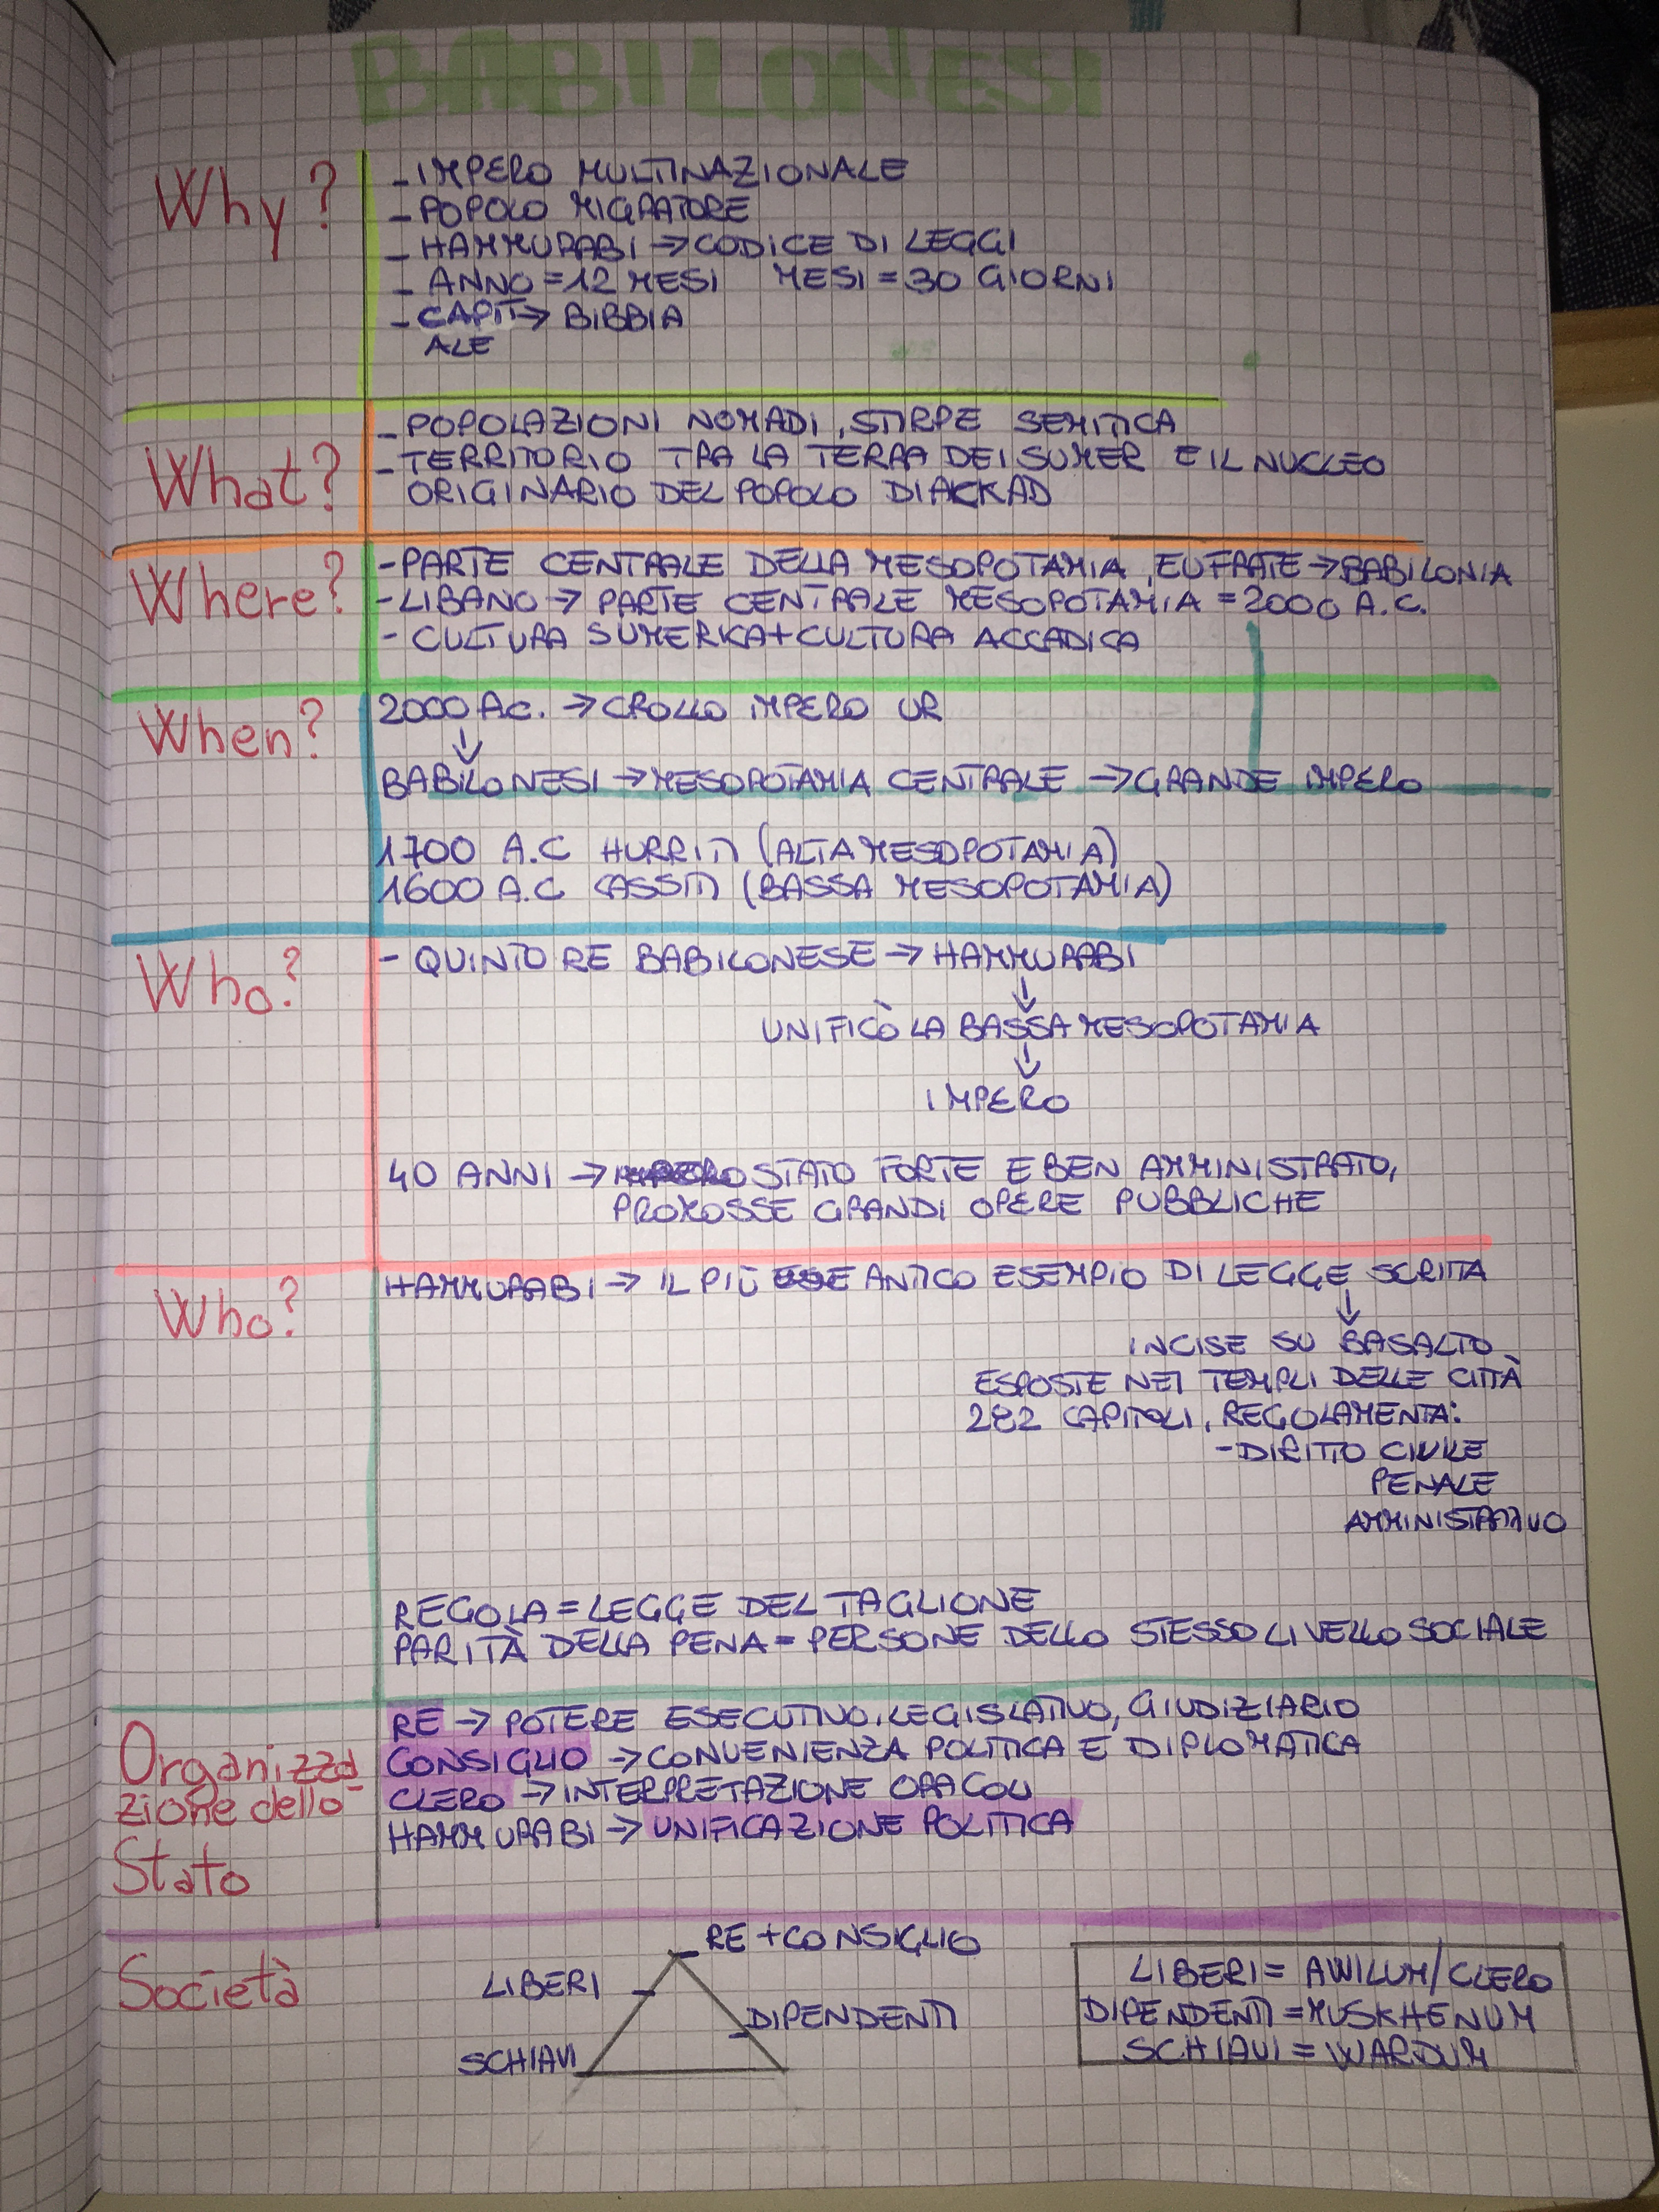 BABILONESI
Why?
- IMPERO MULTINAZIONALE
- POPOLO MIGRATORE
- HAMMURABI → CODICE DI LEGGI
- ANNO = 12 MESI MESI = 30 GIORNI
- CAPIT → BIBBIA
ALE
What?
- POPOLAZIONI NOMADI, STIRPE SEMITICA
- TERRITORIO TRA LA TERRA DEI SUMER E IL NUCLEO
ORIGINARIO DEL POPOLO DI AKKAD
Where?
- PARTE CENTRALE DELLA MESOPOTAMIA, EUFRATE → BABILONIA
- LIBANO → PARTE CENTRALE MESOPOTAMIA = 2000 A.C.
- CULTURA SUMERICA + CULTURA ACCADICA
When?
2000 A.C. → CROLLO IMPERO UR
↓
BABILONESI → MESOPOTAMIA CENTRALE → GRANDE IMPERO
1700 A.C HURRITI (ALTA MESOPOTAMIA)
1600 A.C CASSITI (BASSA MESOPOTAMIA)
Who?
- QUINTO RE BABILONESE → HAMMURABI
↓
UNIFICÒ LA BASSA MESOPOTAMIA
↓
IMPERO
40 ANNI → STATO FORTE E BEN AMMINISTRATO,
PROMOSSE GRANDI OPERE PUBBLICHE
Who?
HAMMURABI → IL PIÙ ANTICO ESEMPIO DI LEGGE SCRITTA
↓
INCISE SU BASALTO
ESPOSTE NEI TEMPLI DELLE CITTÀ
282 CAPITOLI, REGOLAMENTA:
- DIRITTO CIVILE
PENALE
AMMINISTRATIVO
REGOLA = LEGGE DEL TAGLIONE
PARITÀ DELLA PENA = PERSONE DELLO STESSO LIVELLO SOCIALE
Organizza
zione dello
Stato
RE → POTERE ESECUTIVO, LEGISLATIVO, GIUDIZIARIO
CONSIGLIO → CONVENIENZA POLITICA E DIPLOMATICA
CLERO → INTERPRETAZIONE ORACOLI
HAMMURABI → UNIFICAZIONE POLITICA
Società
RE + CONSIGLIO
LIBERI
DIPENDENTI
SCHIAVI
LIBERI = AWILUM/CLERO
DIPENDENTI = MUSKHENUM
SCHIAVI = WARDUM